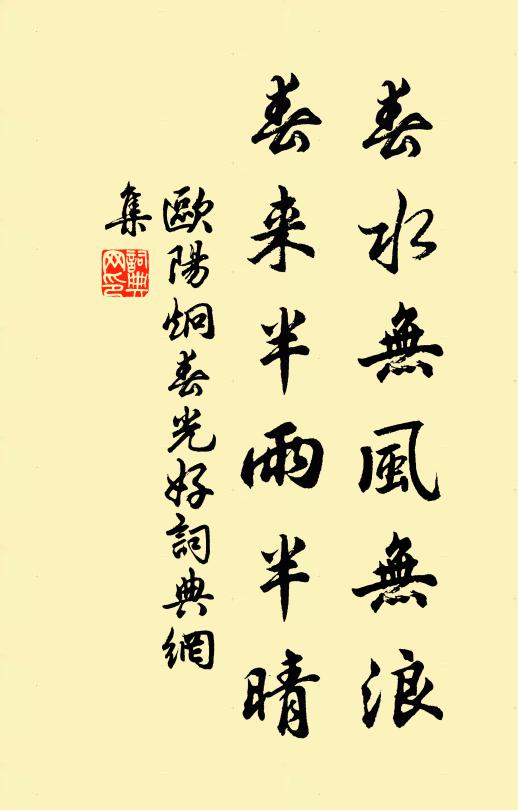 春水無風無浪
春来半雨半晴
歐陽炯春光好詞典網
集
詞典
网印